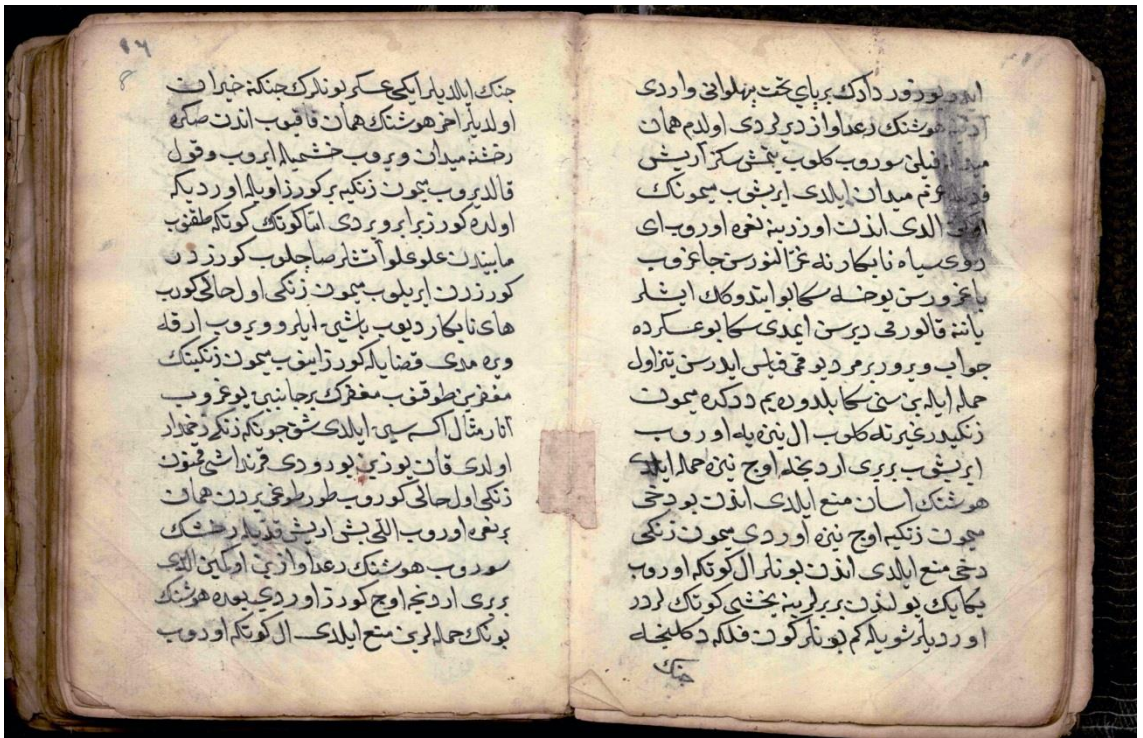 ایدر یوزور دارك بر پای تخت پهلوانی واردی
هوشنك رعد اواز دیرلردی اولدم همان
فیلی سوروب كلوب یتمش سكز اریش
عزم میدان ایلدی ایریشوب میمونك
اوكین الدی اندن اوزرینه نعره اوروب ای
روی سیاه نابكار نه عر النورسن جاغروب
باغرورسن یوخسه سكا بو ایتدوكك ایشلر
یاننه قالورمی دیرسن ایمدی سكا بو عسكرده
جواب ویرور بر مرد یوقمی قیاس ایدرسن تیز اول
حمله ایله بن سنی سكا بلدوره یم ددكده میمون
زنكیدر غیرته كلوب ال نیزه یه اوروب
ایریشوب بربری اردنجه اوج نیزه حمله ایلدی
هوشنك اسان منع ایلدی اندن بو دخی
میمون زنكیه اوج نیزه اوردی میمون زنكی
دخی منع ایلدی اندن بونلر ال كوتكه اوروب
یكا یك یولندن بربرلرینه یخشی كوتك لردر
اوردیلر شویله كم بونلر كون فلكه دكلنجه
جنك
۱۶
8
جنك ایلدیلر ایكی عسكر بونلرك جنكنه خیران
اولدیلر اخر هوشنك همان قاقیوب اندن صكره
رخشنه میدان ویروب خشمیله ایروب وقول
قالدیروب میمون زنكیه بر كورز اویله اوردیكه
اولده كورز برابر ویردی اما كوتك كوتكه طقنوب
مابیندن علو علو آتشلر صاجلوب كورز در
كورزدن ایریلوب میمون زنكی اول حالی كورب
های نابكار دیوب باشی ایلرو ویروب ارقه
ویره مدی قضایله كورز اینوب میمون زنكینك
مغفرینه طوقنوب مغفرك بر جانبین یوغروب
آنار مثال اكسه سین ایلدی شق جونكه زنكی زخمدار
اولدی قان یوزین بورودی قرنداشی قیمون
زنكی اول حالی كوروب طورطوغی یردن همان
بر نعره اوروب اللی بش اریش قدیله رخشك
سوروب هوشنك رعد اوازین اوكین الدی
بربری اردنجه اوج كورز اوردی بوده هوشنك
بونك حمله لرین منع ایلدی ال كوتكه اوروب